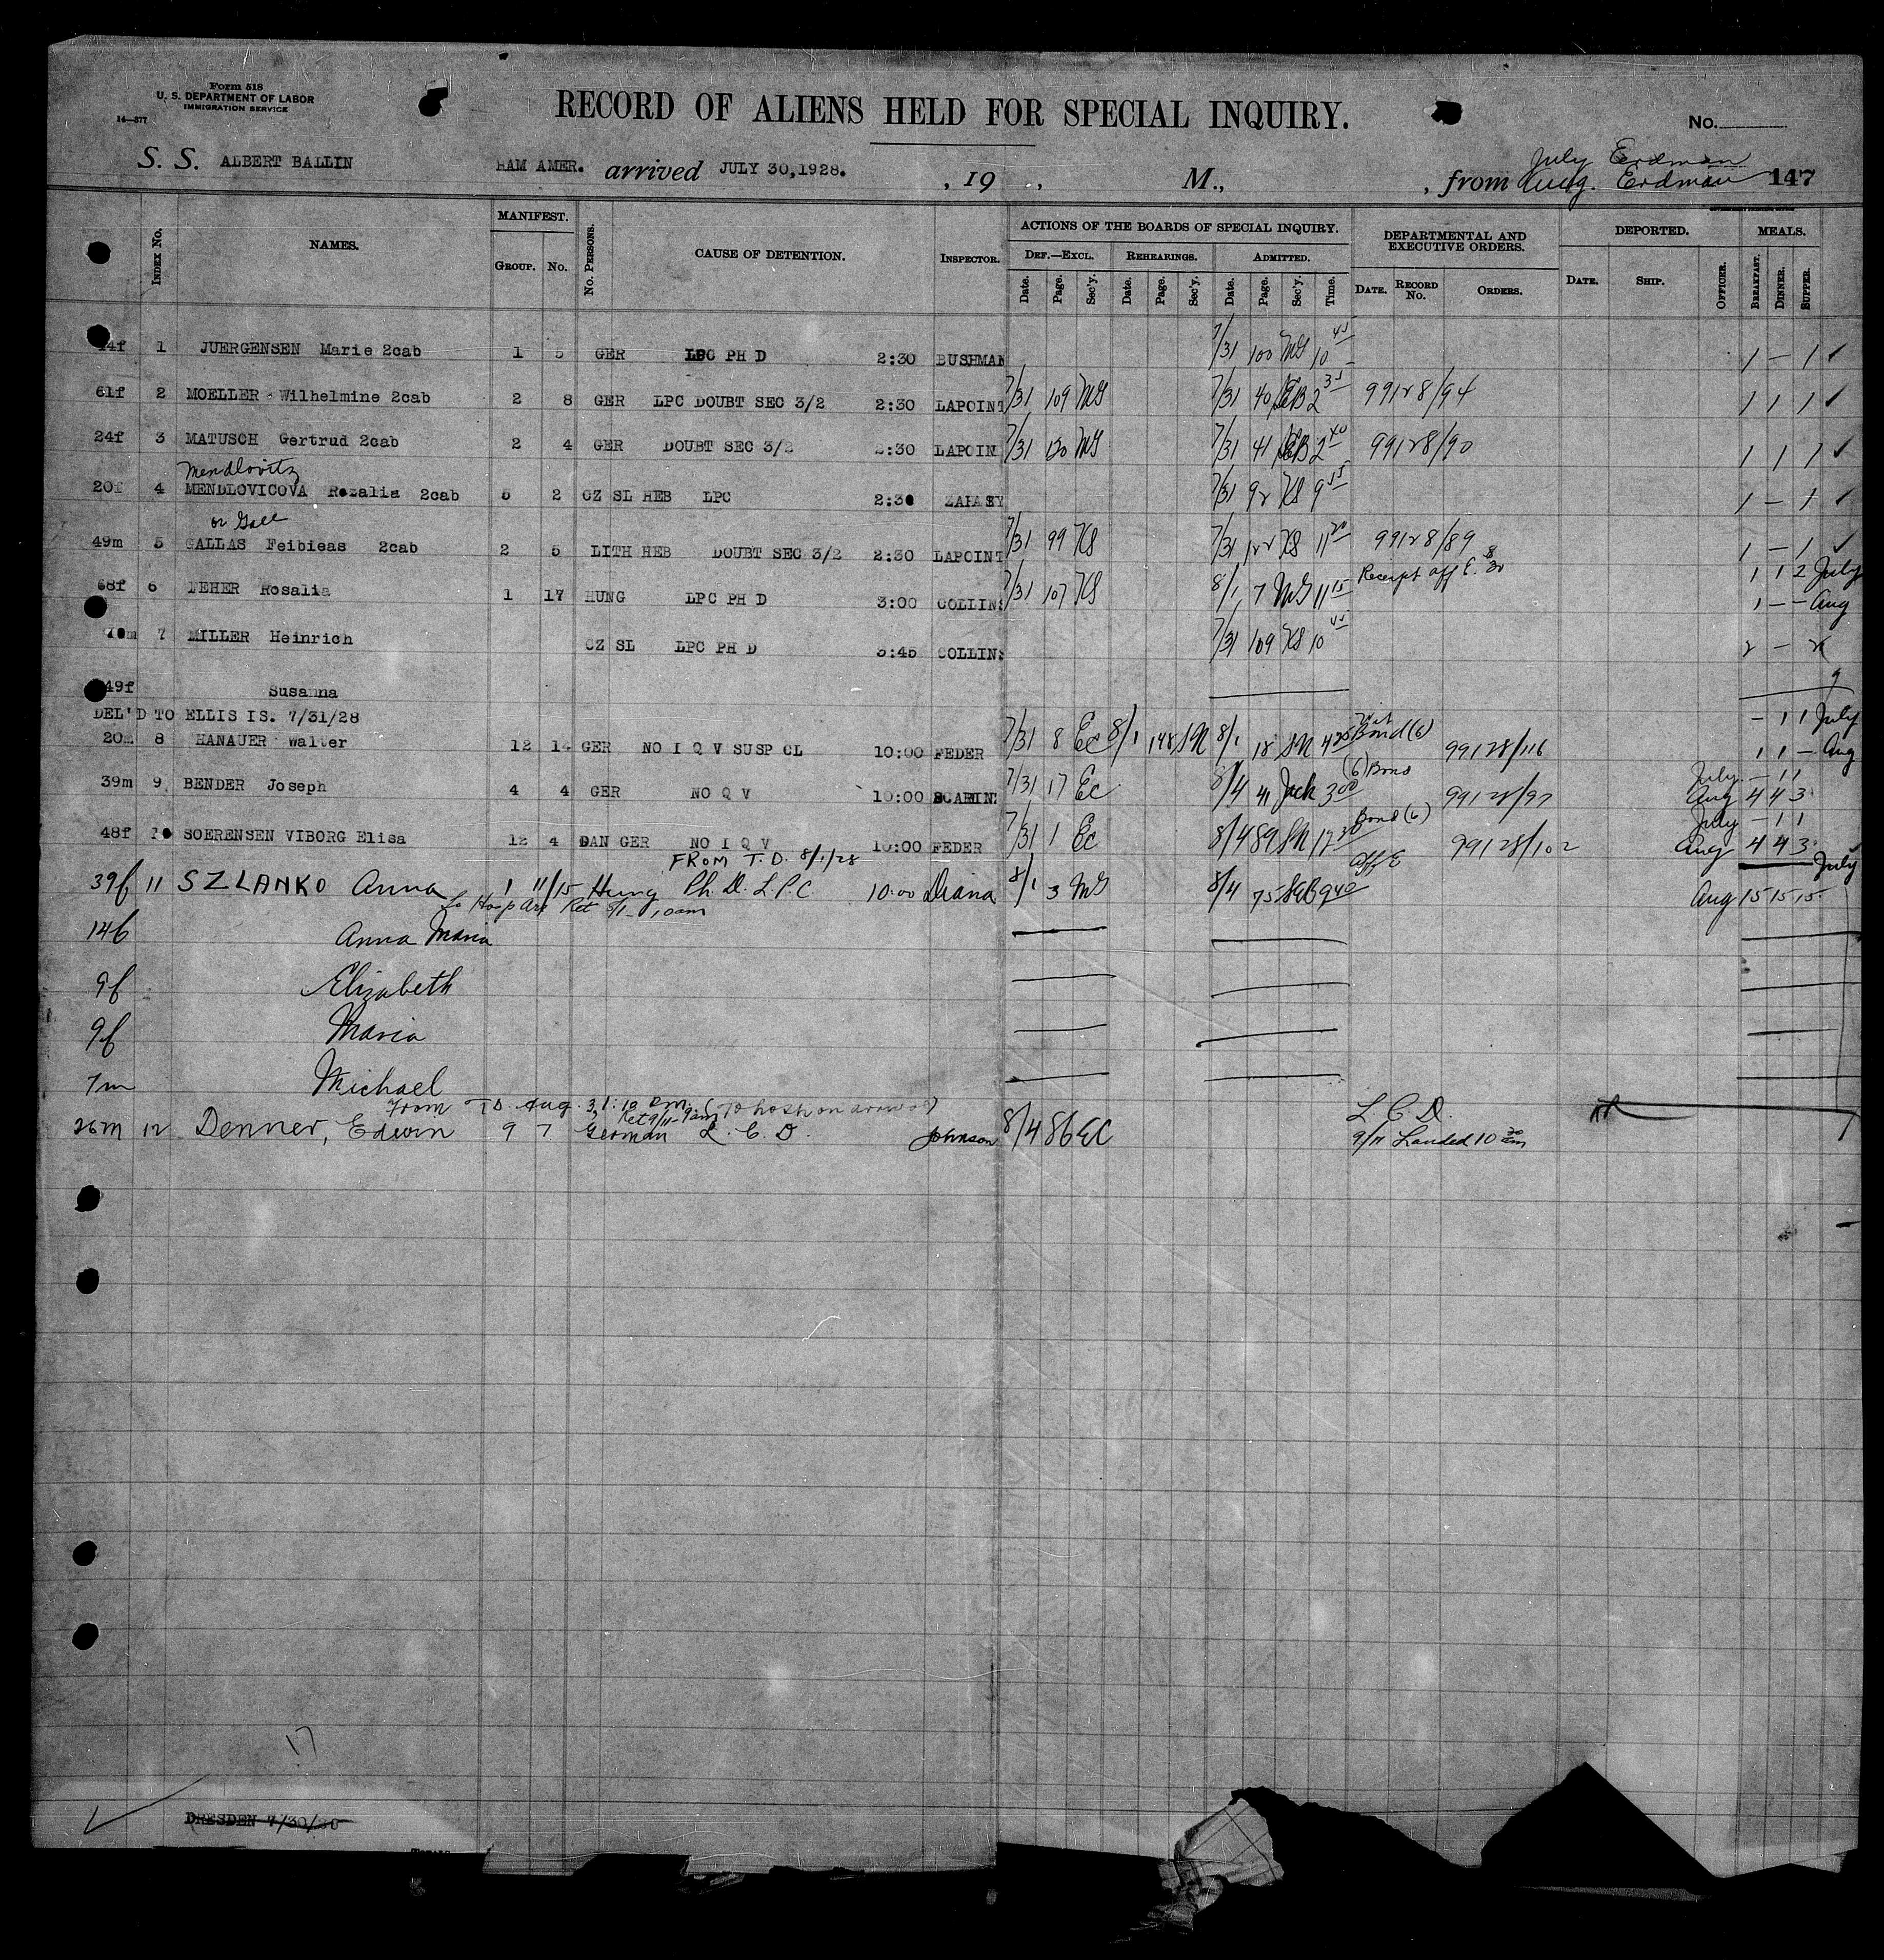 Form 518
U. S. DEPARTMENT OF LABOR
IMMIGRATION SERVICE
14—577
RECORD OF ALIENS HELD FOR SPECIAL INQUIRY.
No.
S. S. ALBERT BALLIN HAM AMER. arrived JULY 30,1928. , 19 , M., , from July Erdman
Aug. Erdman 147
Index No. NAMES. MANIFEST. Group. No. No. Persons. CAUSE OF DETENTION. Inspector. ACTIONS OF THE BOARDS OF SPECIAL INQUIRY. DEPARTMENTAL AND EXECUTIVE ORDERS. DEPORTED. MEALS.
Def.—Excl. Rehearings. Admitted.
Date. Page. Sec'y. Date. Page. Sec'y. Date. Page. Sec'y. Time. Date. Record No. Orders. Date. Ship. Officer. Breakfast. Dinner. Supper.
44f 1 JUERGENSEN Marie 2cab 1 5 GER LPC PH D 2:30 BUSHMAN 7/31 100 MG 10 45 1 — 1 ✓
61f 2 MOELLER Wilhelmine 2cab 2 8 GER LPC DOUBT SEC 3/2 2:30 LAPOINT 7/31 109 MG 7/31 40 2 35 99128/94 1 1 1 ✓
24f 3 MATUSCH Gertrud 2cab 2 4 GER DOUBT SEC 3/2 2:30 LAPOIN 7/31 130 MG 7/31 41 2 40 99128/90 1 1 1 ✓
Mendlovitz
20f 4 MENDLOVICOVA Rozalia 2cab 5 2 CZ SL HEB LPC 2:30 7/31 92 KS 9 55 1 — 1 ✓
or Gall
49m 5 GALLAS Feibieas 2cab 2 5 LITH HEB DOUBT SEC 3/2 2:30 LAPOINT 7/31 99 KS 7/31 122 KS 11 20 99128/89 1 — 1 ✓
68f 6 FEHER Rosalia 1 17 HUNG LPC PH D 3:00 COLLINS 7/31 107 KS 8/1 7 MG 11 15 Receipt aff E. 1 1 2 July
1 — — Aug
70m 7 MILLER Heinrich CZ SL LPC PH D 3:45 COLLINS 7/31 109 KS 10 45 2 — 2
49f Susanna
DEL'D TO ELLIS IS. 7/31/28 — 1 1 July
20m 8 HANAUER Walter 12 14 GER NO I Q V SUSP CL 10:00 FEDER 7/31 8 EC 8/1 148 SN 8/1 18 SN 4 Bond (6) 99128/116 1 1 — Aug
39m 9 BENDER Joseph 4 4 GER NO Q V 10:00 7/31 17 EC 8/4 41 Jack 3 00 (6) Bond 99128/97 July — 1 1
Aug 4 4 3
48f 10 SOERENSEN VIBORG Elisa 12 4 DAN GER NO I Q V 10:00 FEDER 7/31 1 EC 8/4 89 SN Bond (6) 99128/102 July — 1 1
Aug 4 4 3
FROM T. D. 8/1/28
39f 11 SZLANKO Anna 1 11/15 Hung Ph. D. L.P.C. 10:00 Diana 8/1 3 MG 8/4 75 9 40 aff E July
Aug 15 15 15
To Hosp Ret 8/1 — 10am
14f Anna Maria
9f Elizabeth
9f Maria
7m Michael
From T.D. Aug. 3, 1:10 P.m. (To hosp on arrival)
Ret 9/11 9am
26m 12 Denner, Edwin 9 7 German L. C. D. Johnson 8/4 86 EC L. C. D.
9/11 Landed 10 30 am
17
DRESDEN 7/30/28